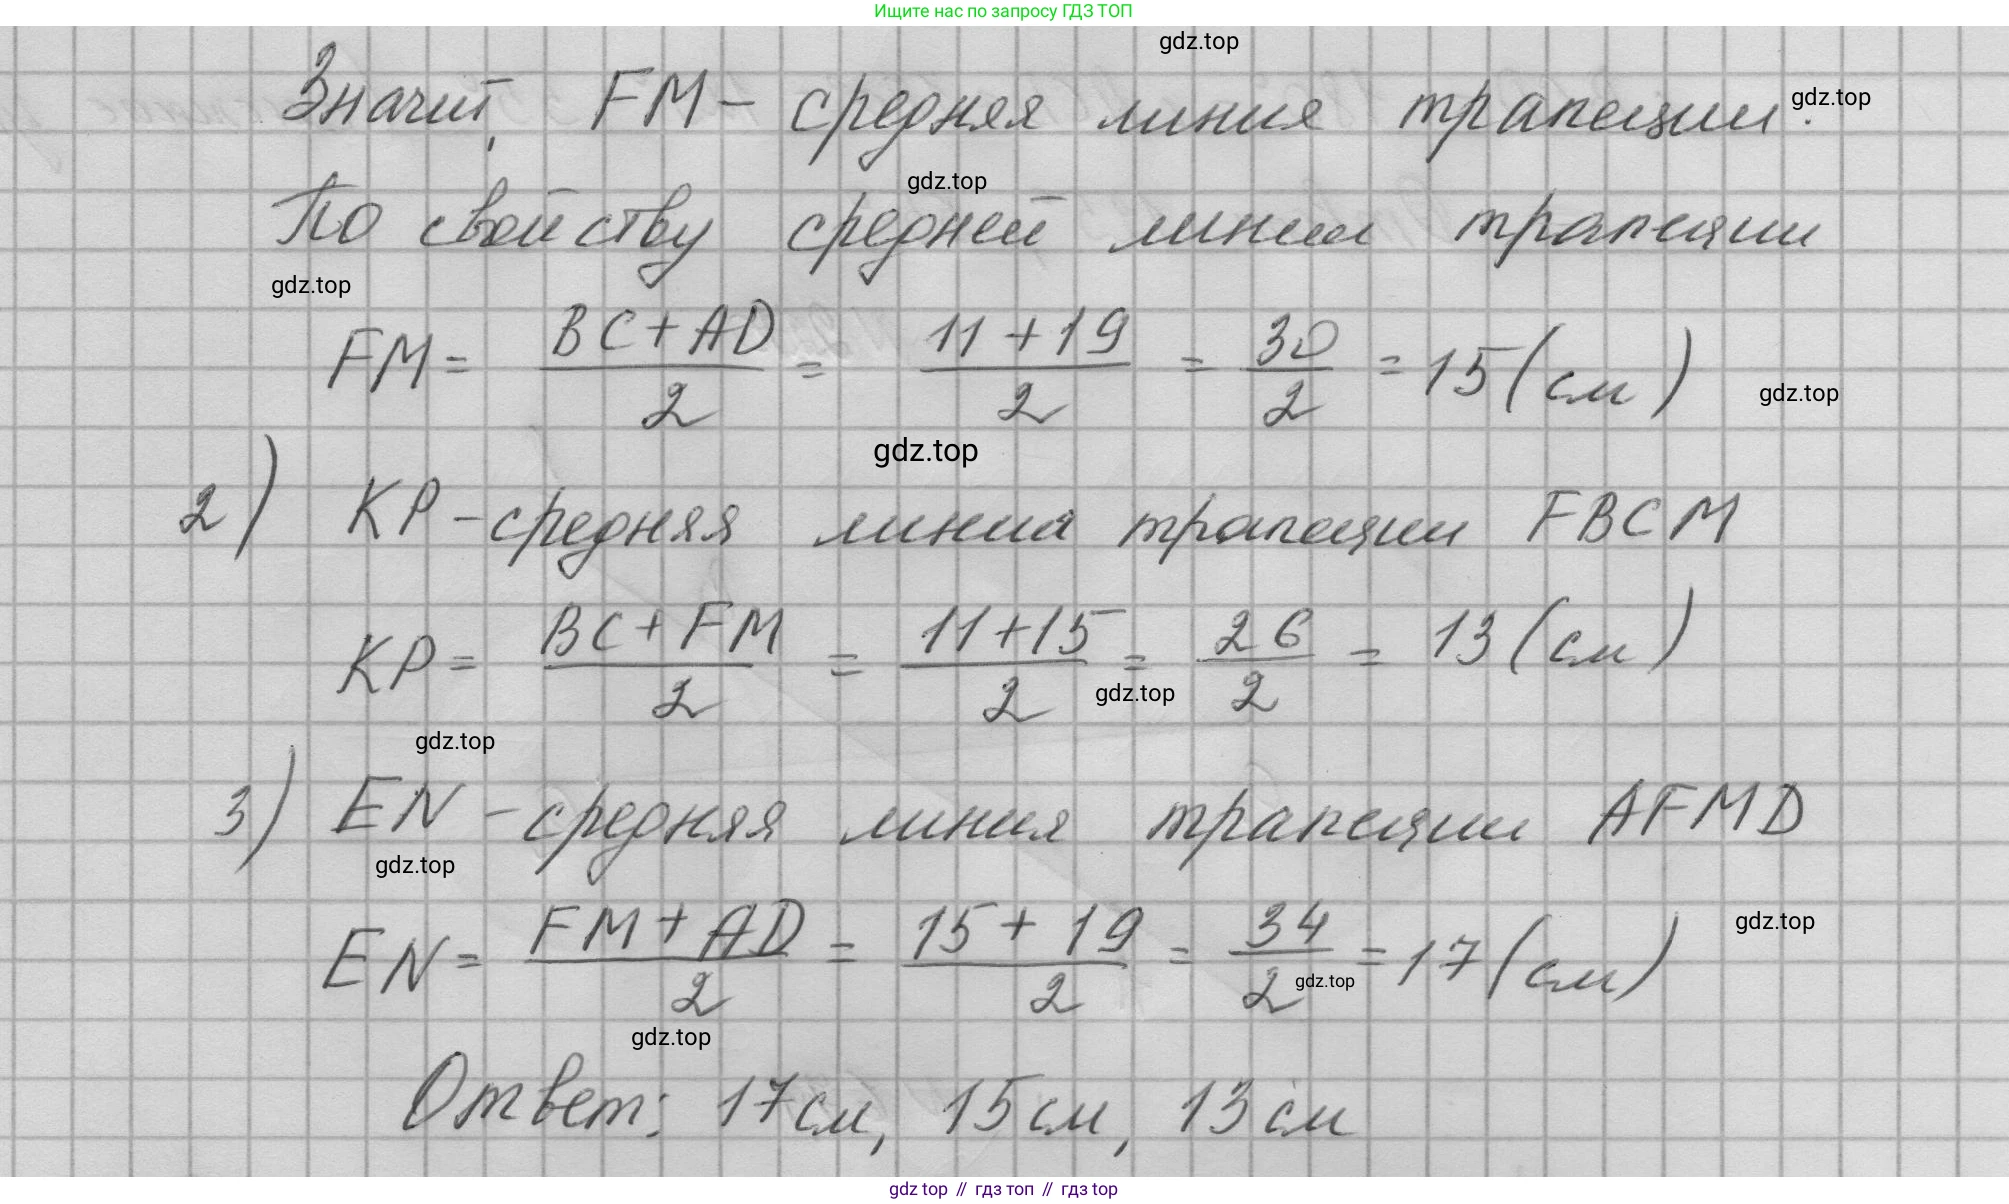 Ищите нас по запросу ГДЗ ТОП
gdz.top
Значит, FM – средняя линия трапеции.
gdz.top
По свойству средней линии трапеции
gdz.top
gdz.top
FM = BC + AD / 2 = 11 + 19 / 2 = 30 / 2 = 15 (см)
gdz.top
gdz.top
2) KP – средняя линия трапеции FBCM
KP = BC + FM / 2 = 11 + 15 / 2 = 26 / 2 = 13 (см)
gdz.top
gdz.top
3) EN – средняя линия трапеции AFMD
gdz.top
EN = FM + AD / 2 = 15 + 19 / 2 = 34 / 2 = 17 (см)
gdz.top
gdz.top
gdz.top
Ответ: 17 см, 15 см, 13 см
gdz top // гдз топ // гдз top